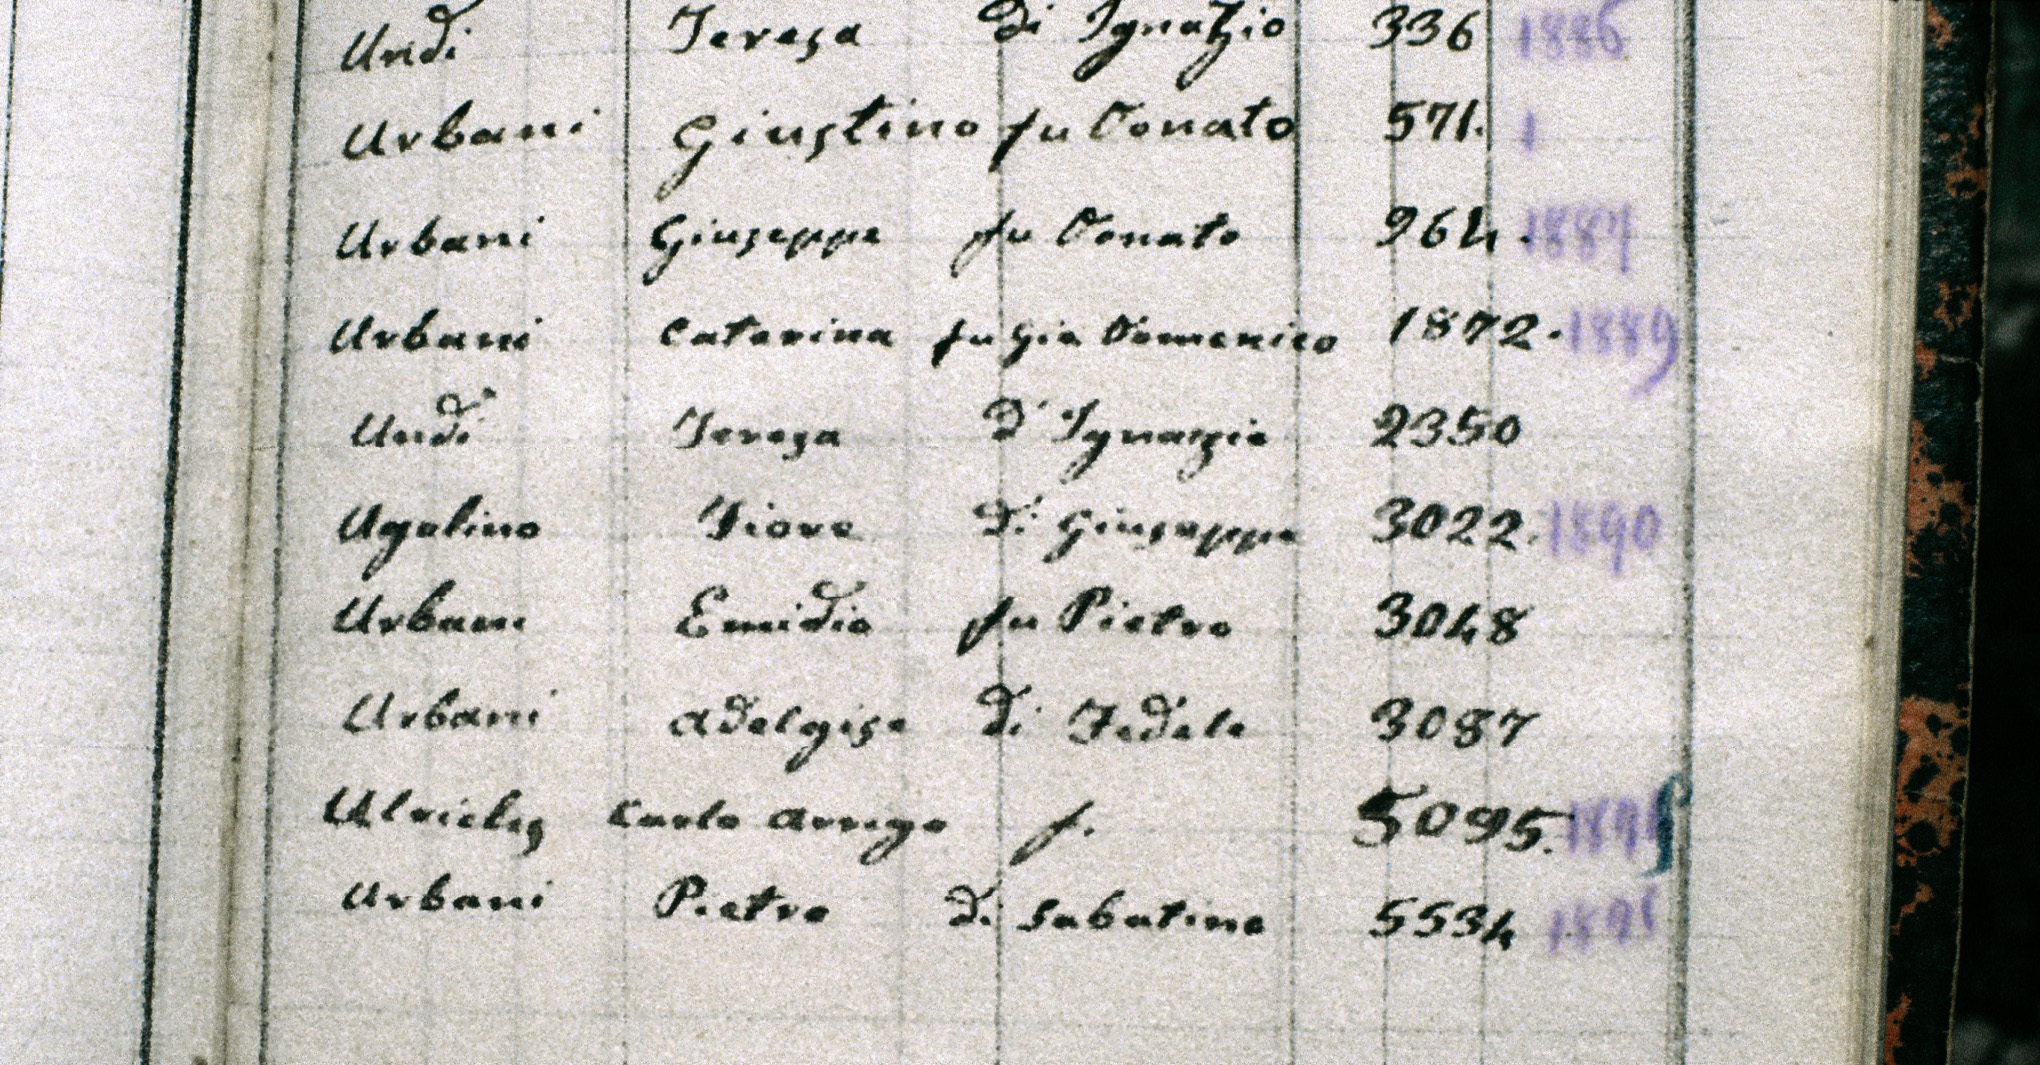 Undi Teresa di Ignatzio 336 1886
Urbani Giustino fu Donato 571. 1
Urbani Giuseppe fu Donato 964. 1887
Urbani Caterina fu Gia Domenico 1872. 1889
Undi Teresa d' Ignazio 2350
Ugolino Fiore di Giuseppe 3022. 1890
Urbani Emidio fu Pietro 3048
Urbani Adelgisa di Fedele 3087
Carlo Arrigo f. 5095.
Urbani Pietro di Sabatino 5534